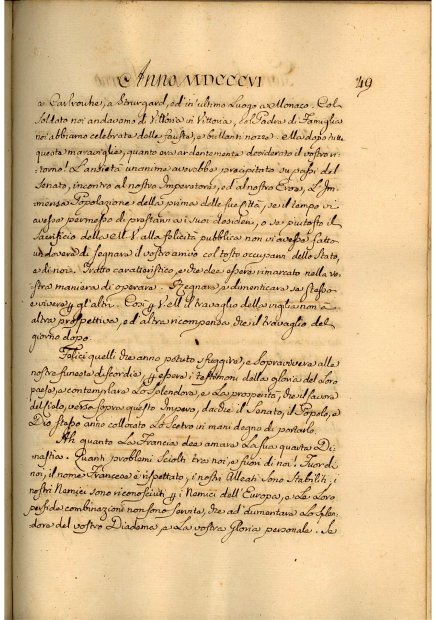 Anno MDCCCVI 49
a Carlsruhe, a Stutgard, ed in ultimo luogo a Monaco. Col
Soldato noi andavamo di Vittoria in Vittoria, col Padre di Famiglia
noi abbiamo celebrate delle fauste, e brillanti nozze. Ma dopo tutte
queste maraviglie, quanto era ardentemente desiderato il vostro ri-
torno! L'ansietà unanime avrebbe precipitato su passi del
Senato, incontro al nostro Imperatore, ed al nostro Eroe, L'Im-
mensa Popolazione della prima delle sue Città, se il tempo vi
avesse permesso di prestarvi a i suoi desiderj, o se piutosto il
Sacrificio della M. V. alla felicità pubblica non vi avesse fatto
un dovere di segnare il vostro arrivo col tosto occuparvi dello Stato,
e di noi. Tratto caratteristico, e che dee essere rimarcato nella vo-
stra maniera di operare. Regnare è dimenticare se stesso
e vivere p gl'altri. Così p V. M. il travaglio della vigilia non à
altra prospettiva, ed altra ricompensa che il travaglio del
giorno dopo.
Felici quelli che anno potuto sfuggire, e sopravivere alle
nostre funeste discordie, p essere i testimonj della gloria del loro
paese, e contemplare lo Splendore, e la prosperità, che il favore
del Cielo, versa sopra questo Impero, da che il Senato, il Popolo, e
Dio stesso anno collocato lo Scetro in mani degne di portarlo.
Ah quanto la Francia dee amare la sua quarta Di-
nastia. Quanti problemi sciolti tra noi, e fuori di noi! Fuor di
noi, il nome Francese è rispettato, i nostri Alleati sono stabiliti, i
nostri Nemici sono riconosciuti p i Nemici dell'Europa, e le loro
perfide combinazioni non sono servite, che ad aumentare lo Splen-
dore del vostro Diadema, e la vostra Gloria personale. Se